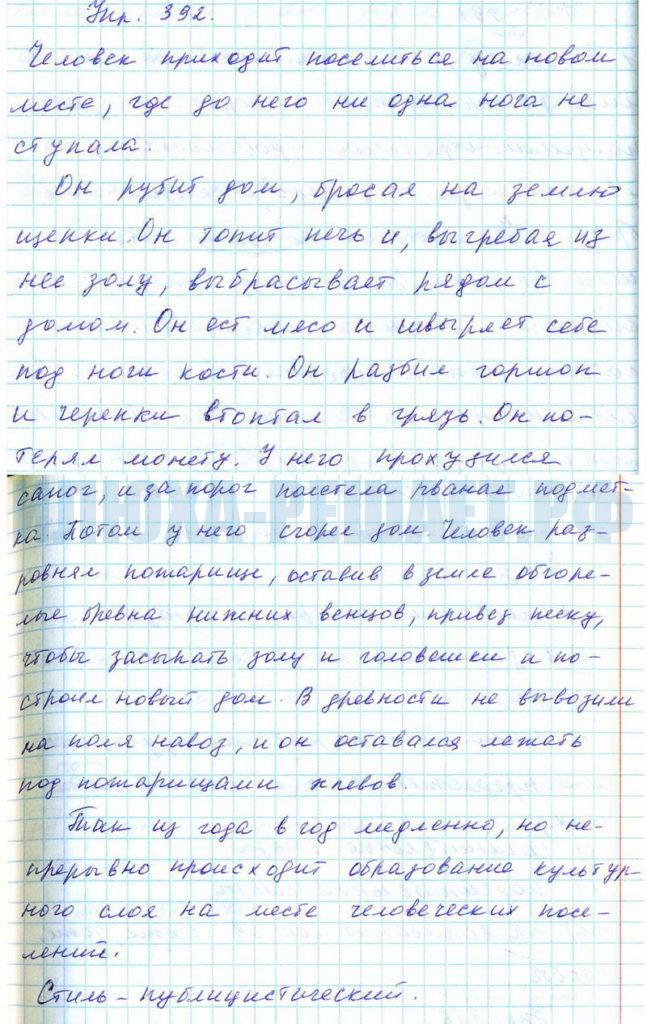 Упр. 392.
Человек приходит поселиться на новом
месте, где до него ни одна нога не
ступала.
Он рубит дом, бросая на землю
щепки. Он топит печь и, выгребая из
нее золу, выбрасывает рядом с
домом. Он ест мясо и швыряет себе
под ноги кости. Он разбил горшок
и черепки втоптал в грязь. Он по-
терял монету. У него прохудился
сапог, и за порог полетела рваная подмет-
ка. Потом у него сгорел дом. Человек раз-
ровнял пожарище, оставив в земле обгоре-
лые бревна нижних венцов, привез песку,
чтобы засыпать золу и головешки и по-
строил новый дом. В древности не вывозили
на поля навоз, и он оставался лежать
под пожарищами хлевов.
Так из года в год медленно, но не-
прерывно происходит образование культур-
ного слоя на месте человеческих посе-
лений.
Стиль – публицистический.